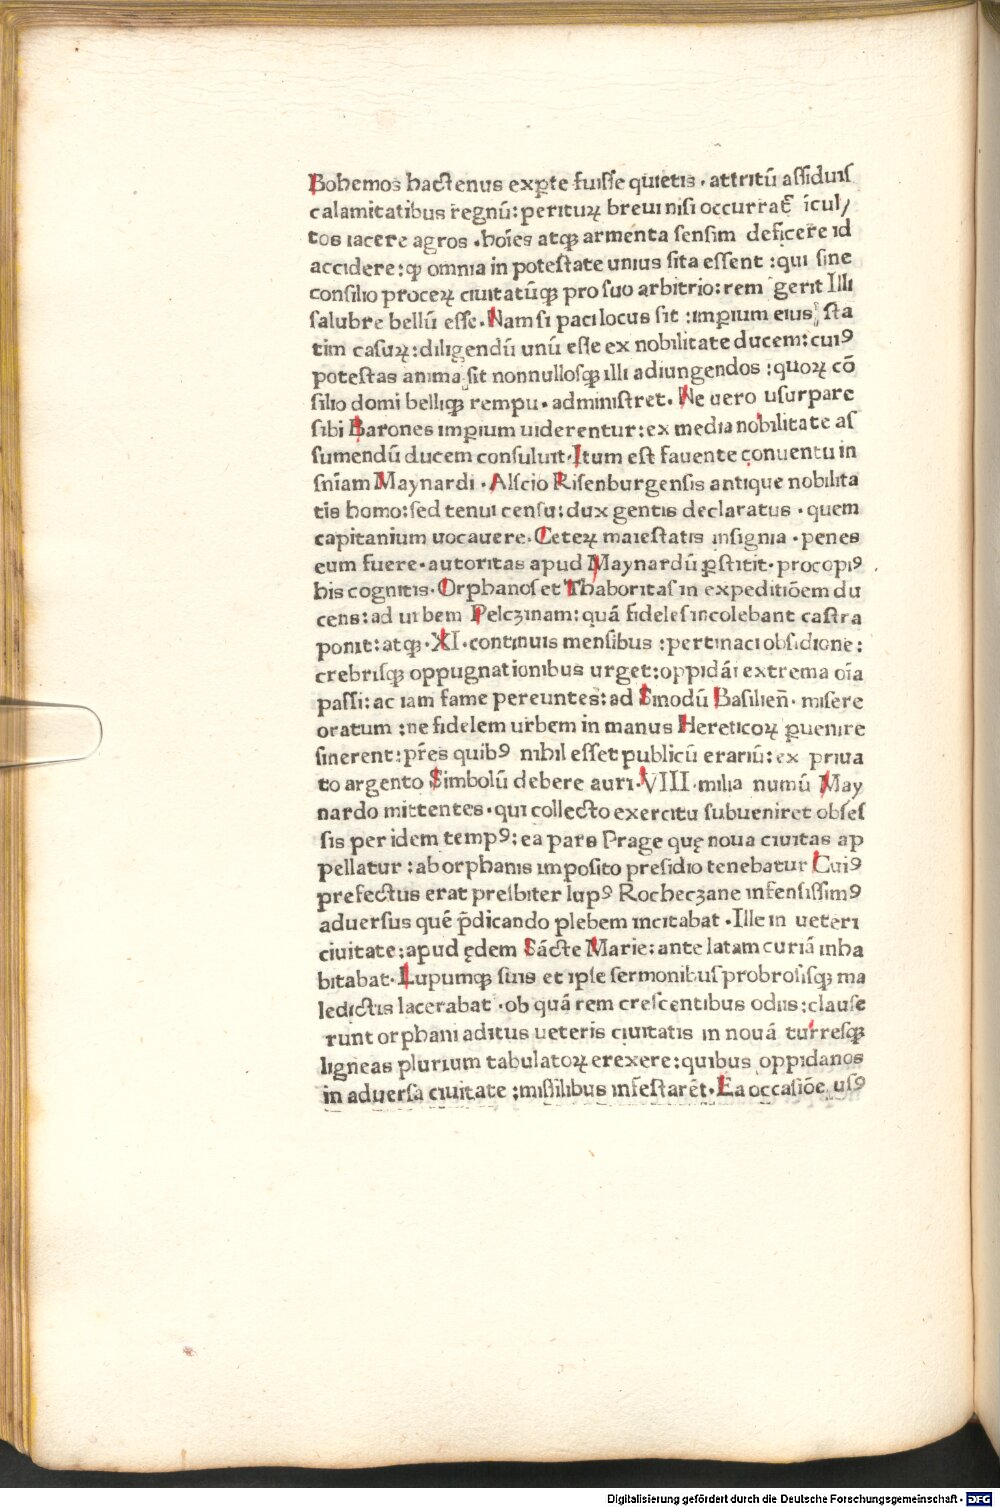 Bohemos hactenus exꝑte fuiſſe quietis · attritū aſſiduiſ
calamitatibus regnū: perituꝝ breui niſi occurrat̄ īcul/
tos iacere agros · hoīes atqꝫ armenta ſenſim deficere id
accidere: ꝙ omnia in poteſtate unius ſita eſſent : qui ſine
conſilio proceꝝ ciuitatūqꝫ pro ſuo arbitrio: rem gerit Illi
ſalubre bellū eſſe. Nam ſi paci locus ſit : imꝑium eius ſta
tim caſuꝝ: diligendū unū eſſe ex nobilitate ducem: cuiꝰ
poteſtas anima ſit nonnulloſqꝫ illi adiungendos : quoꝝ cō
ſilio domi belliqꝫ rempu · adminiſtret. Ne uero uſurpare
ſibi Barones imꝑium uiderentur: ex media nobilitate aſ
ſumendū ducem conſuluit. Itum eſt fauente conuentu in
ſnīam Maynardi · Alſcio Riſenburgenſis antique nobilita
tis homo: ſed tenui cenſu: dux gentis declaratus · quem
capitanium uocauere. Ceteꝝ maieſtatis inſignia · penes
eum fuere · autoritas apud Maynardū ꝑſtitit · procopiꝰ
his cognitis · Orphanoſ et Thaboritaſ in expeditiōem du
cens: ad urbem Pelcꝫinam: quā fideleſ incolebant caſtra
ponit: atqꝫ · XI · continuis menſibus : pertinaci obſidione:
crebriſqꝫ oppugnationibus urget: oppidāi extrema oīa
paſſi: ac iam fame pereuntes: ad Sinodū Baſilien̄ · miſere
oratum : ne fidelem urbem in manus Hereticoꝝ ꝑuenire
ſinerent: pr̄es quibꝰ nihil eſſet publicū erariū: ex priua
to argento Simbolū debere auri · VIII · milia numū May
nardo mittentes · qui collecto exercitu ſubueniret obſeſ
ſis per idem tempꝰ: ea pars Prage quę noua ciuitas ap
pellatur : ab orphanis impoſito preſidio tenebatur Cuiꝰ
prefectus erat preſbiter lupꝰ Rocheczane infenſiſſimꝰ
aduersus quē p̄dicando plebem incitabat · Ille in ueteri
ciuitate: apud ędem Sācte Marie: ante latam curiā inha
bitabat · Lupumqꝫ ſuis et ipſe ſermonibuſ probroſiſqꝫ ma
ledictis lacerabat · ob quā rem creſcentibus odiis: clauſe
runt orphani aditus ueteris ciuitatis in nouā turreſqꝫ
ligneas plurium tabulatoꝝ erexere: quibus oppidanos
in aduerſa ciuitate : miſſilibus infeſtarēt · Ea occaſiōe uſꝰ
Digitalisierung gefördert durch die Deutsche Forschungsgemeinschaft - DFG